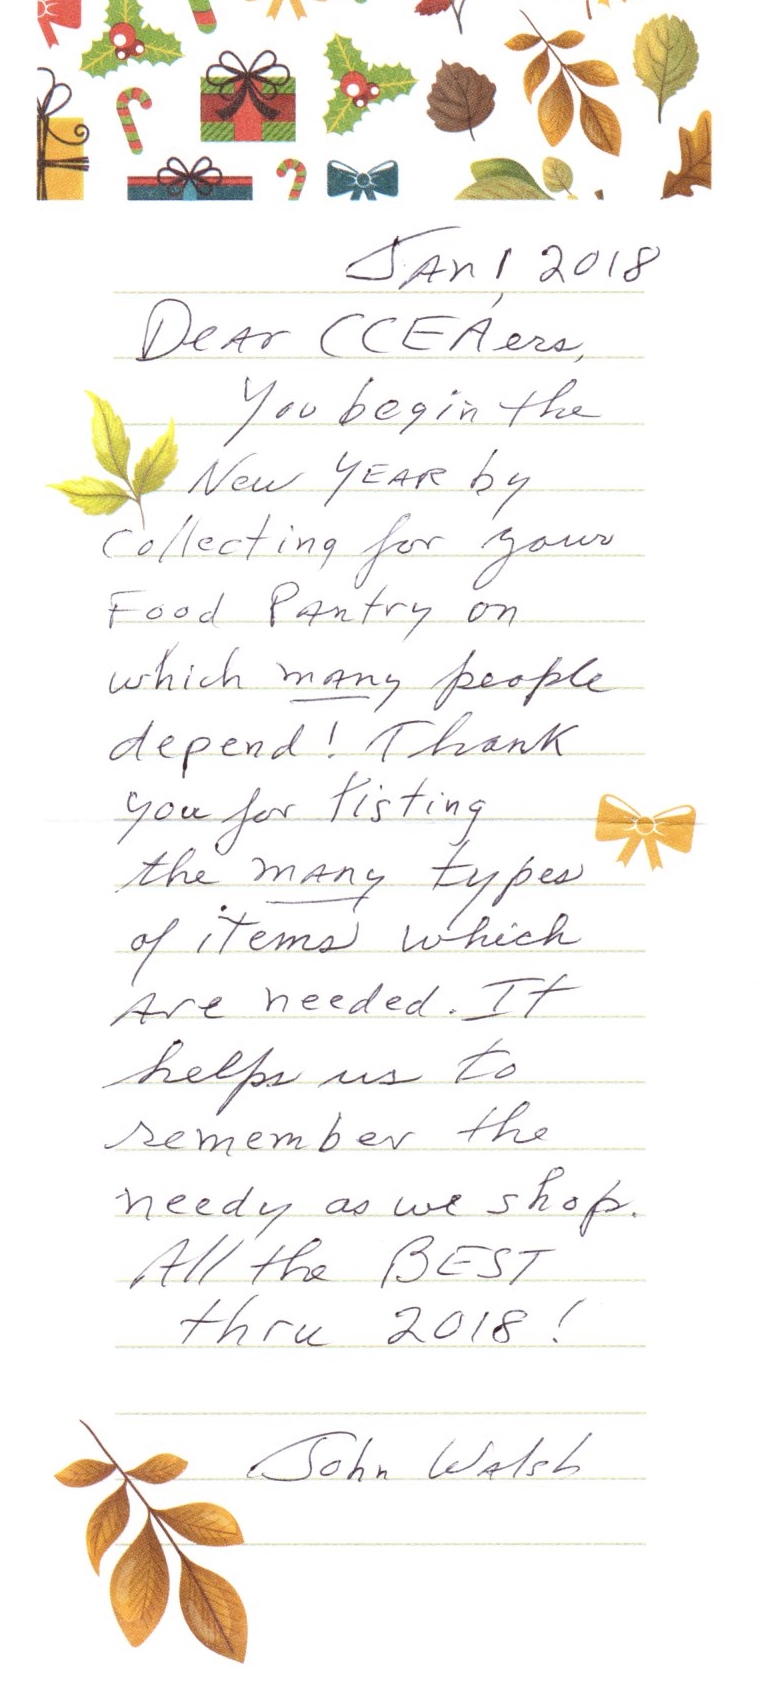 Jan 1, 2018
Dear CCEAers,
You begin the
New YEAR by
Collecting for your
Food Pantry on
which many people
depend! Thank
you for listing
the many types
of items which
are needed. It
helps us to
remember the
needy as we shop.
All the BEST
thru 2018!
John Walsh